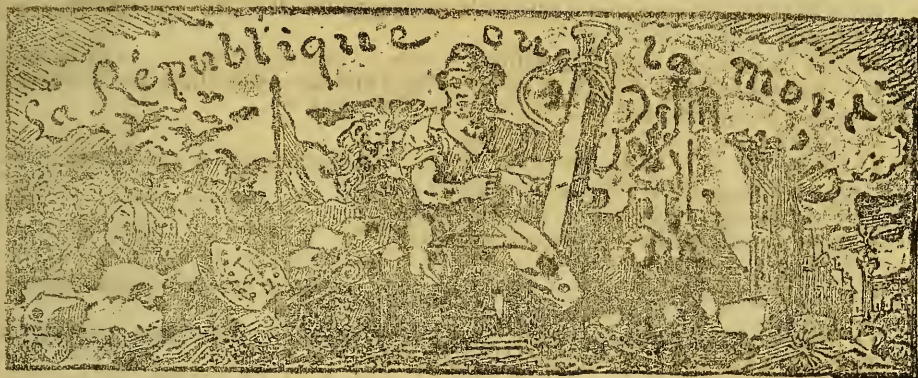 La République ou la mort